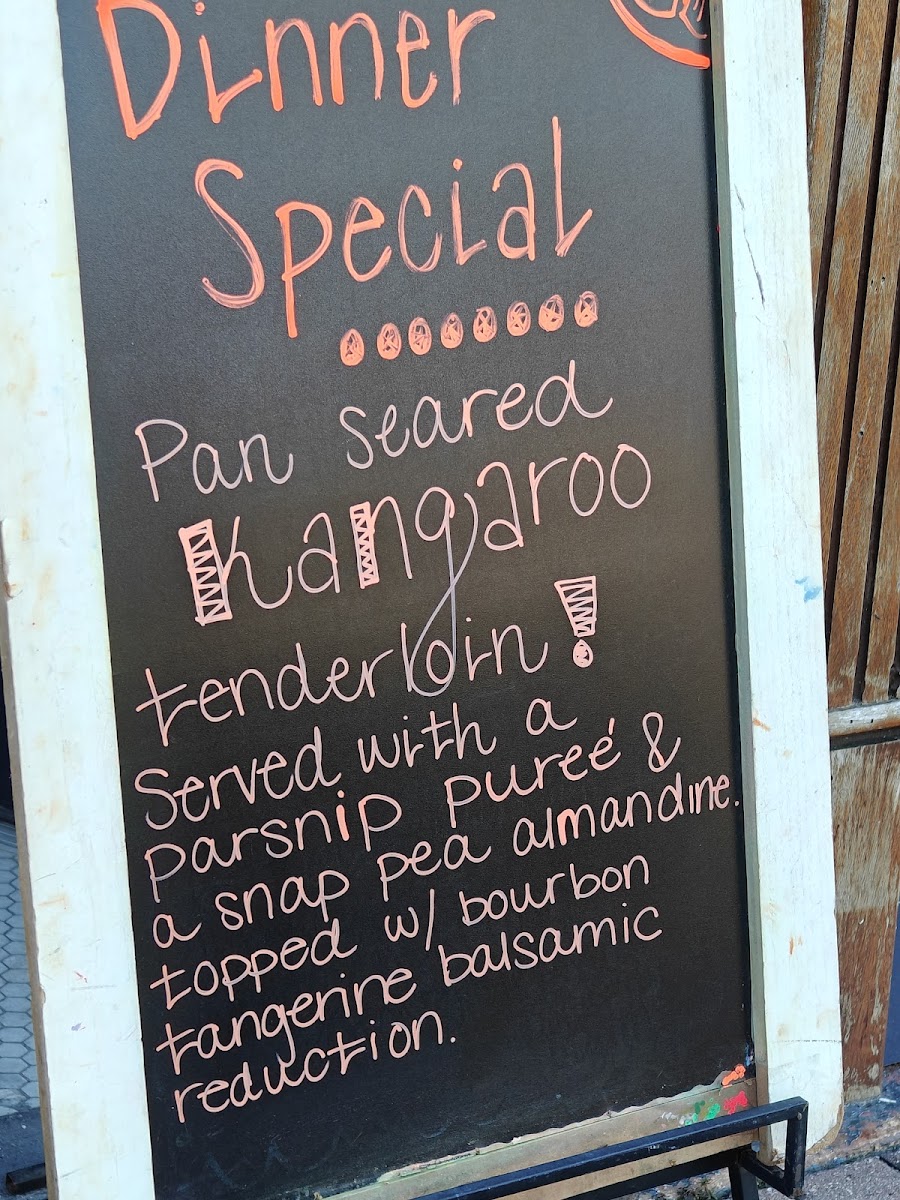 Dinner
Special
Pan seared
Kangaroo
tenderloin!
Served with a
parsnip pureé &
a snap pea almandine.
topped w/ bourbon
tangerine balsamic
reduction.